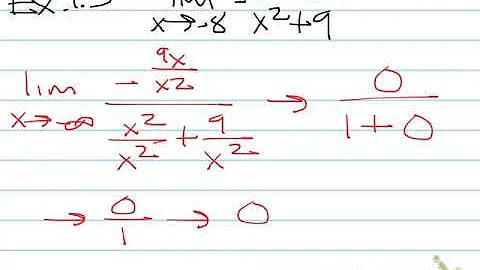 Ex 1.5 lim
x→-8 x²+9
lim -9x/x2 / x²/x² + 9/x² → 0/1+0
x→-∞
→ 0/1 → 0